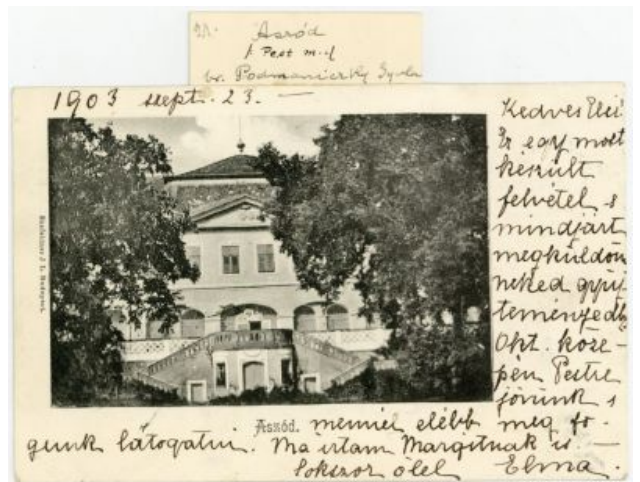 Aszód
Pest m.
br. Podmaniczky Gyula
1903 szept. 23. —
Kedves Elsi
Ez egy most
készült
felvétel s
mindjárt
megküldöm
neked gyüj
teményedb
Okt.köze-
pén Pestre
jövünk s
Aszód. mennél elébb meg fo-
gunk látogatni. Ma irtam Margitnak is —
Sokszor ölel Elma.